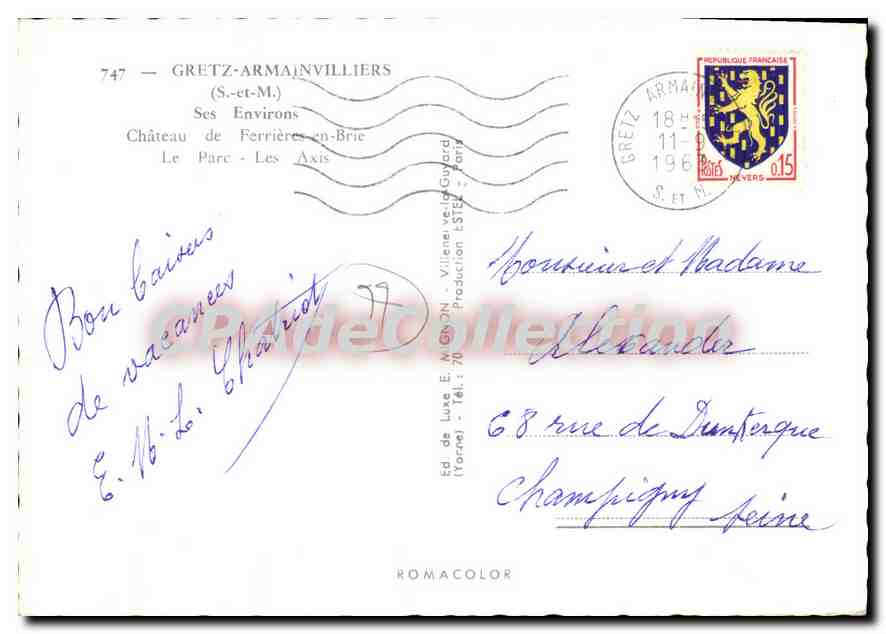 747 — GRETZ-ARMAINVILLIERS
(S.-et-M.)
Ses Environs
Château de Ferrières-en-Brie
Le Parc - Les Axis
Bon baisers
de vacances
E. M. L. Chatriot
77
Ed. de Luxe E. MIGNON - Villeneuve-la-Guyard
(Yonne) - Tél. : 70 Production ESTEL - Paris
GRETZ ARMAIN
18H
11-9
196
S. ET M.
REPUBLIQUE FRANÇAISE
POSTES
0,15
NEVERS
Monsieur et Madame
Alexander
68 rue de Dunkerque
Champigny Seine
ROMACOLOR
CPAdeCollection